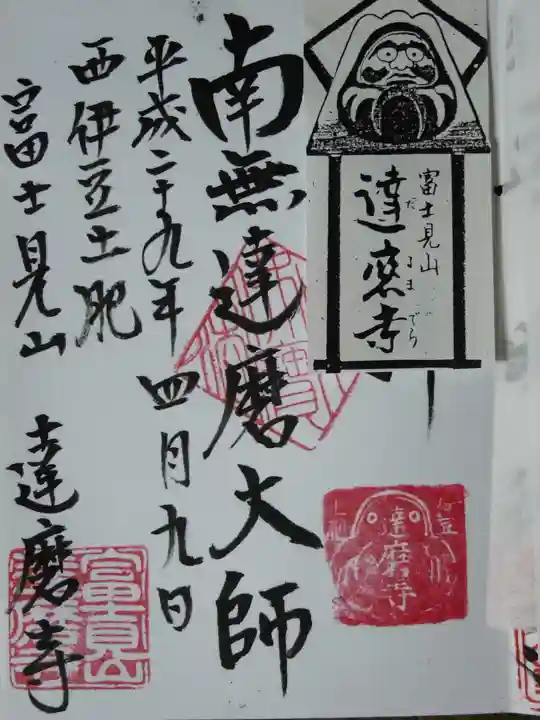 富士見山
達磨寺
だるまでら
南無達磨大師
平成二十九年四月九日
西伊豆土肥
富士見山　達磨寺
達磨寺
富士見山